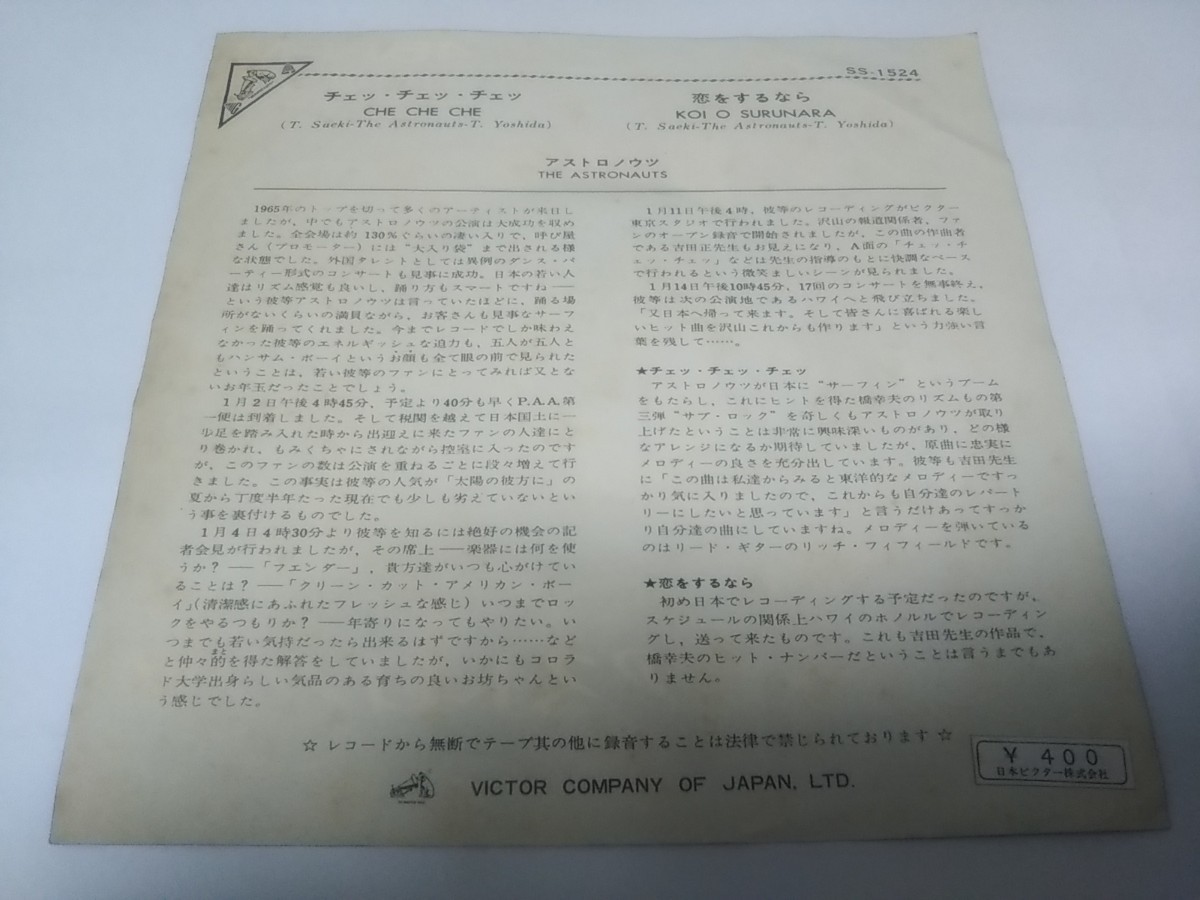 SS-1524
チェッ・チェッ・チェッ
CHE CHE CHE
(T. Saeki-The Astronauts-T. Yoshida)
恋をするなら
KOI O SURUNARA
(T. Saeki-The Astronauts-T. Yoshida)
アストロノウツ
THE ASTRONAUTS
1965年のトップを切って多くのアーティストが来日し
ましたが、中でもアストロノウツの公演は大成功を収め
ました。全会場は約130％ぐらいの凄い入りで、呼び屋
さん(プロモーター)には“大入り袋”まで出される様
な状態でした。外国タレントとしては異例のダンス・パ
ーティー形式のコンサートも見事に成功。日本の若い人
達はリズム感覚も良いし、踊り方もスマートですね──
という彼等アストロノウツは言っていたほどに、踊る場
所がないくらいの満員ながら、お客さんも見事なサーフ
ィンを踊ってくれました。今までレコードでしか味わえ
なかった彼等のエネルギッシュな迫力も、五人が五人と
もハンサム・ボーイというお顔も全て眼の前で見られた
ということは、若い彼等のファンにとってみれば又とな
いお年玉だったことでしょう。
1月2日午後4時45分、予定より40分も早くP.A.A.第
一便は到着しました。そして税関を越えて日本国土に一
歩足を踏み入れた時から出迎えに来たファンの人達にと
り巻かれ、もみくちゃにされながら控室に入ったのです
が、このファンの数は公演を重ねるごとに段々増えて行
きました。この事実は彼等の人気が「太陽の彼方に」の
夏から丁度半年たった現在でも少しも劣えていないとい
う事を裏付けるものでした。
1月4日4時30分より彼等を知るには絶好の機会の記
者会見が行われましたが、その席上──楽器には何を使
うか？──「フエンダー」、貴方達がいつも心がけてい
ることは？──「クリーン・カット・アメリカン・ボー
イ」(清潔感にあふれたフレッシュな感じ)いつまでロッ
クをやるつもりか？──年寄りになってもやりたい。い
つまでも若い気持だったら出来るはずですから……など
と仲々的を得た解答をしていましたが、いかにもコロラ
ド大学出身らしい気品のある育ちの良いお坊ちゃんとい
う感じでした。
1月11日午後4時、彼等のレコーディングがビクター
東京スタジオで行われました。沢山の報道関係者、ファ
ンのオープン録音で開始されましたが、この曲の作曲者
である吉田正先生もお見えになり、A面の「チェッ・チ
ェッ・チェッ」などは先生の指導のもとに快調なペース
で行われるという微笑ましいシーンが見られました。
1月14日午後10時45分、17回のコンサートを無事終え、
彼等は次の公演地であるハワイへと飛び立ちました。
「又日本へ帰って来ます。そして皆さんに喜ばれる楽し
いヒット曲を沢山これからも作ります」という力強い言
葉を残して……。
★チェッ・チェッ・チェッ
アストロノウツが日本に“サーフィン”というブーム
をもたらし、これにヒントを得た橋幸夫のリズムもの第
三弾“サブ・ロック”を奇しくもアストロノウツが取り
上げたということは非常に興味深いものがあり、どの様
なアレンジになるか期待していましたが、原曲に忠実に
メロディーの良さを充分出しています。彼等も吉田先生
に「この曲は私達からみると東洋的なメロディーですっ
かり気に入りましたので、これからも自分達のレパート
リーにしたいと思っています」と言うだけあってすっか
り自分達の曲にしていますね。メロディーを弾いている
のはリード・ギターのリッチ・フィフィールドです。
★恋をするなら
初め日本でレコーディングする予定だったのですが、
スケジュールの関係上ハワイのホノルルでレコーディン
グし、送って来たものです。これも吉田先生の作品で、
橋幸夫のヒット・ナンバーだということは言うまでもあ
りません。
☆ レコードから無断でテープ其の他に録音することは法律で禁じられております ☆
VICTOR COMPANY OF JAPAN, LTD.
¥ 400
日本ビクター株式会社